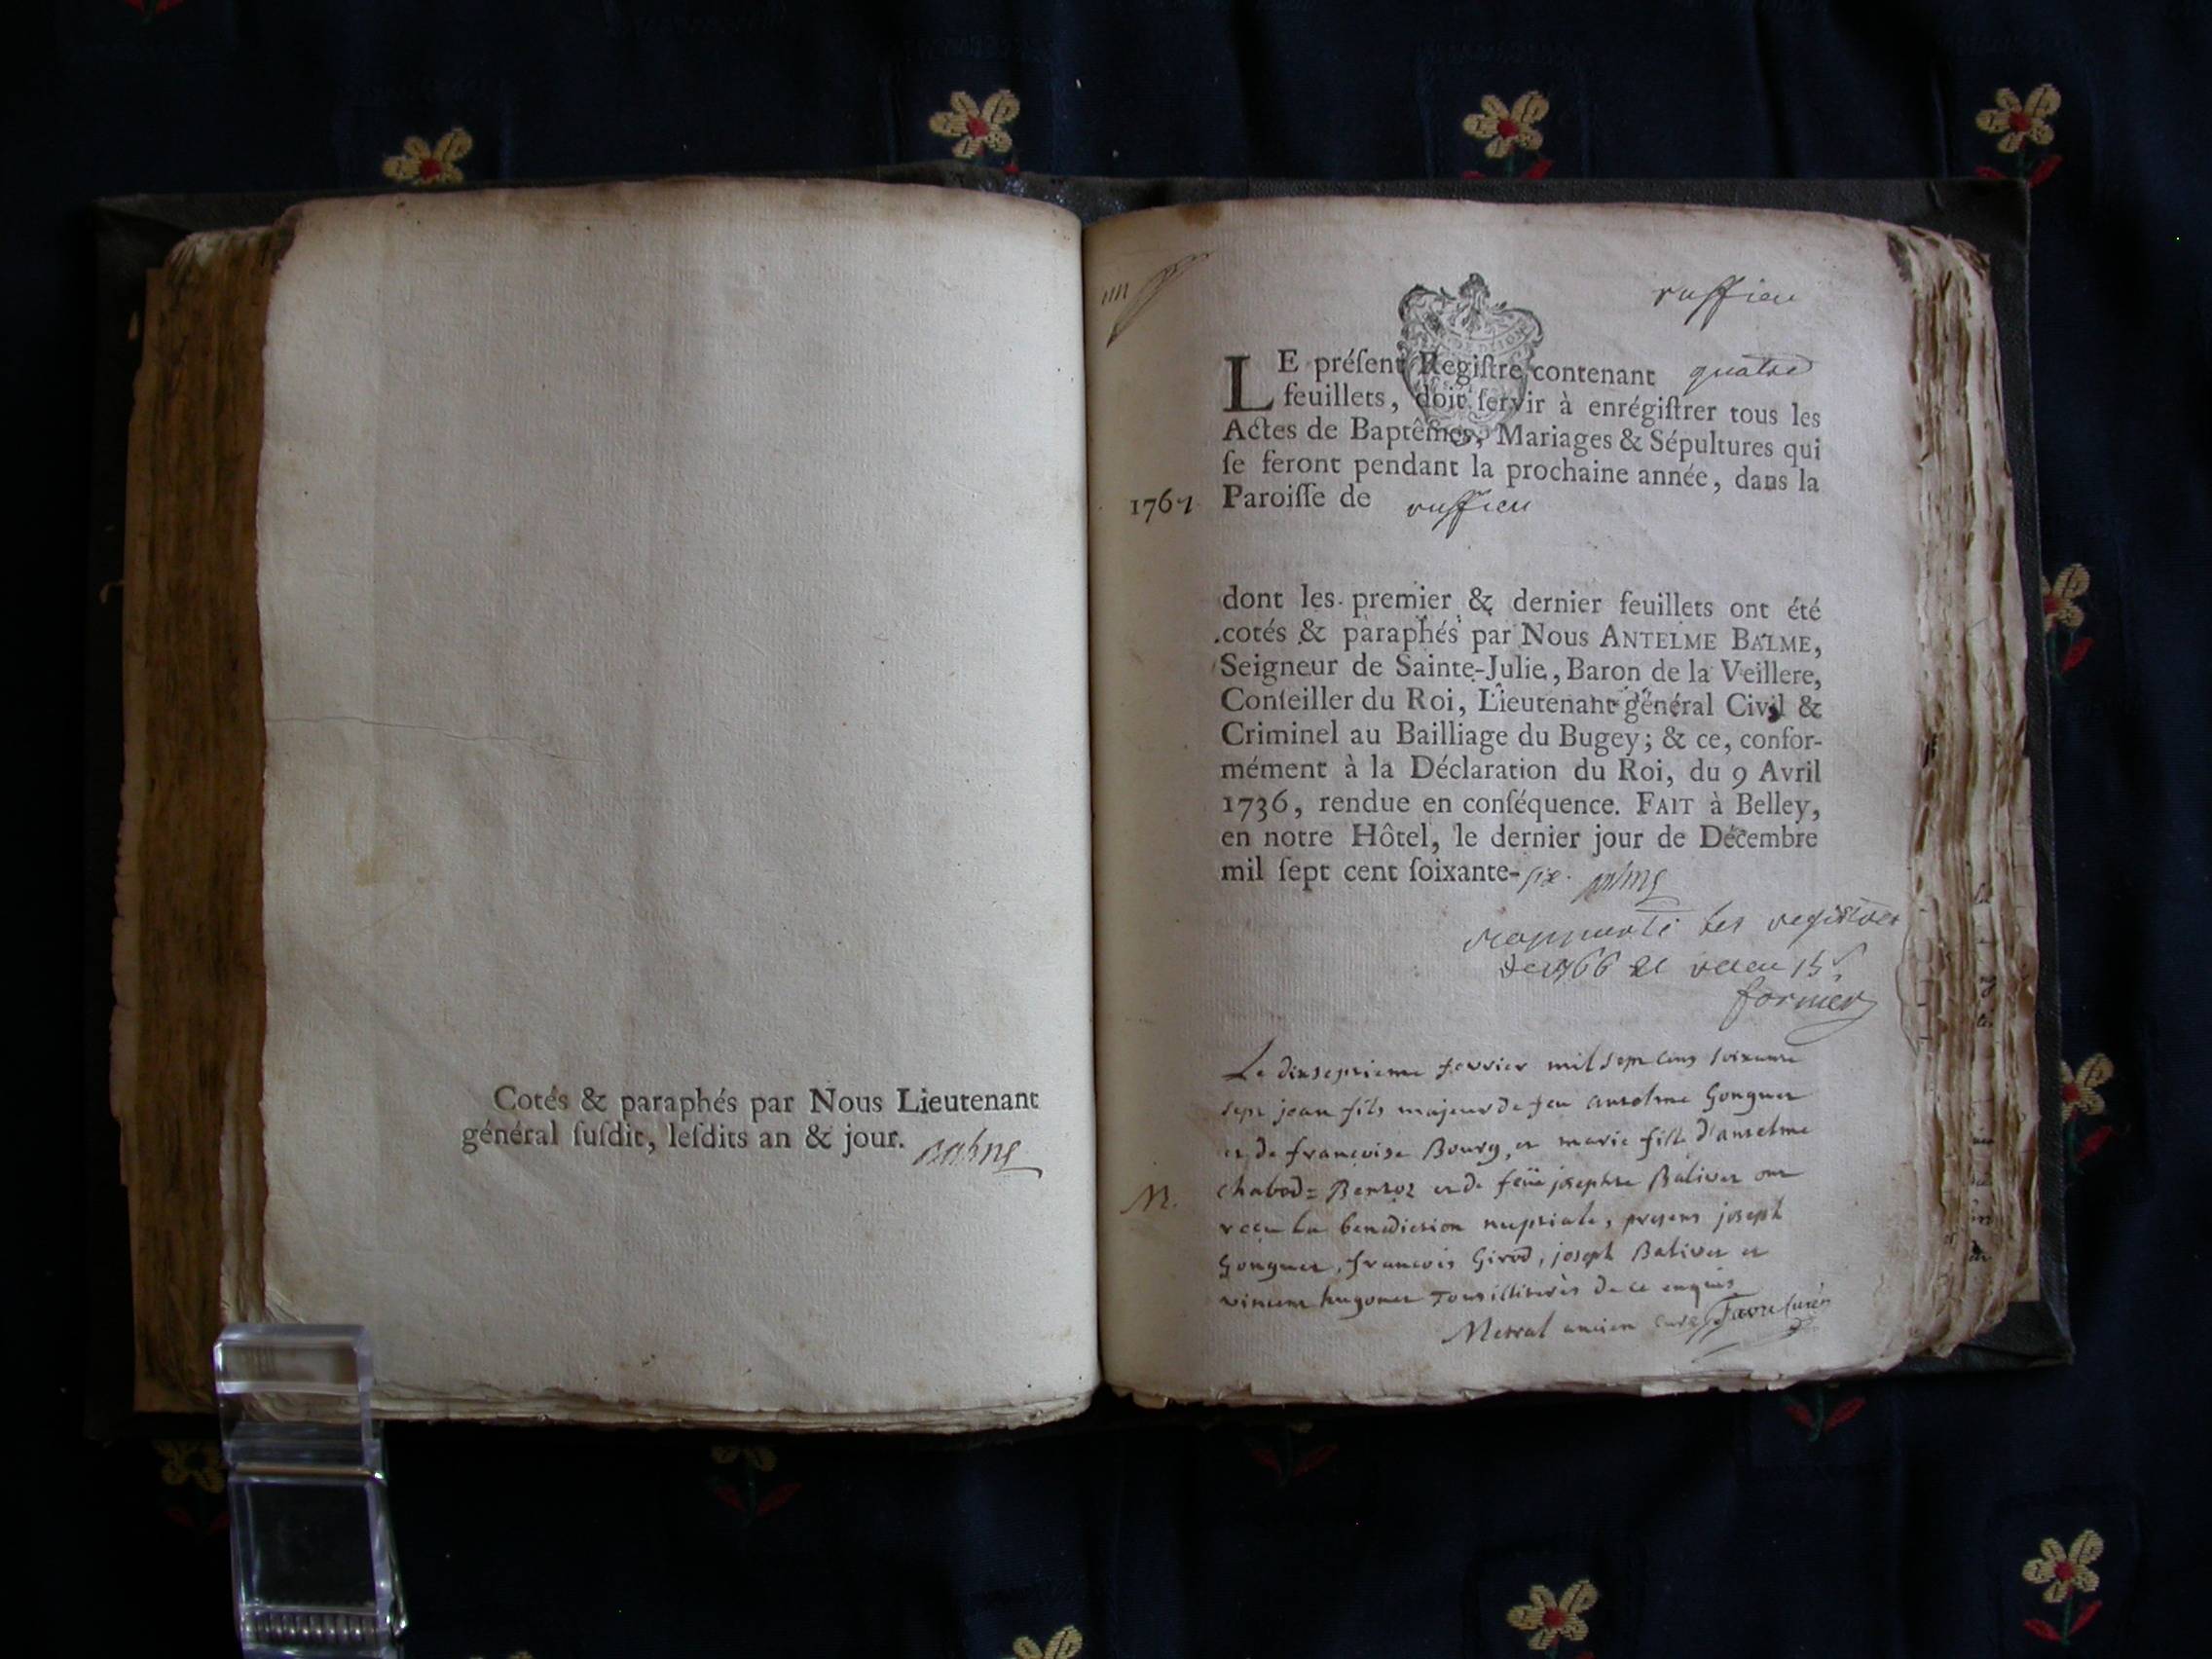 Cotés & paraphés par Nous Lieutenant
général ſuſdit, leſdits an & jour.
ruffieu
LE préſent Regiſtre contenant quatre
feuillets, doit ſervir à enrégiſtrer tous les
Actes de Baptêmes, Mariages & Sépultures qui
ſe feront pendant la prochaine année, dans la
1767 Paroiſſe de ruffieu
dont les premier & dernier feuillets ont été
cotés & paraphés par Nous ANTELME BALME,
Seigneur de Sainte-Julie, Baron de la Veillere,
Conſeiller du Roi, Lieutenant général Civil &
Criminel au Bailliage du Bugey; & ce, confor-
mément à la Déclaration du Roi, du 9 Avril
1736, rendue en conſéquence. FAIT à Belley,
en notre Hôtel, le dernier jour de Décembre
mil ſept cent ſoixante-six.
les registres
de 1766
Le dixseptieme fevrier mil sept cens soixante
sept jean fils majeur de feu antelme Gonguet
et de francoise Bourg, et marie fille d'antelme
chabod= et de feüe josephte Balivet ont
M.
recu la benediction nuptiale, presens joseph
Gonguet, francois Girod, joseph Balivet et
vincent hugonet tous illiterès de ce enquis
Metral ancien curé Favre